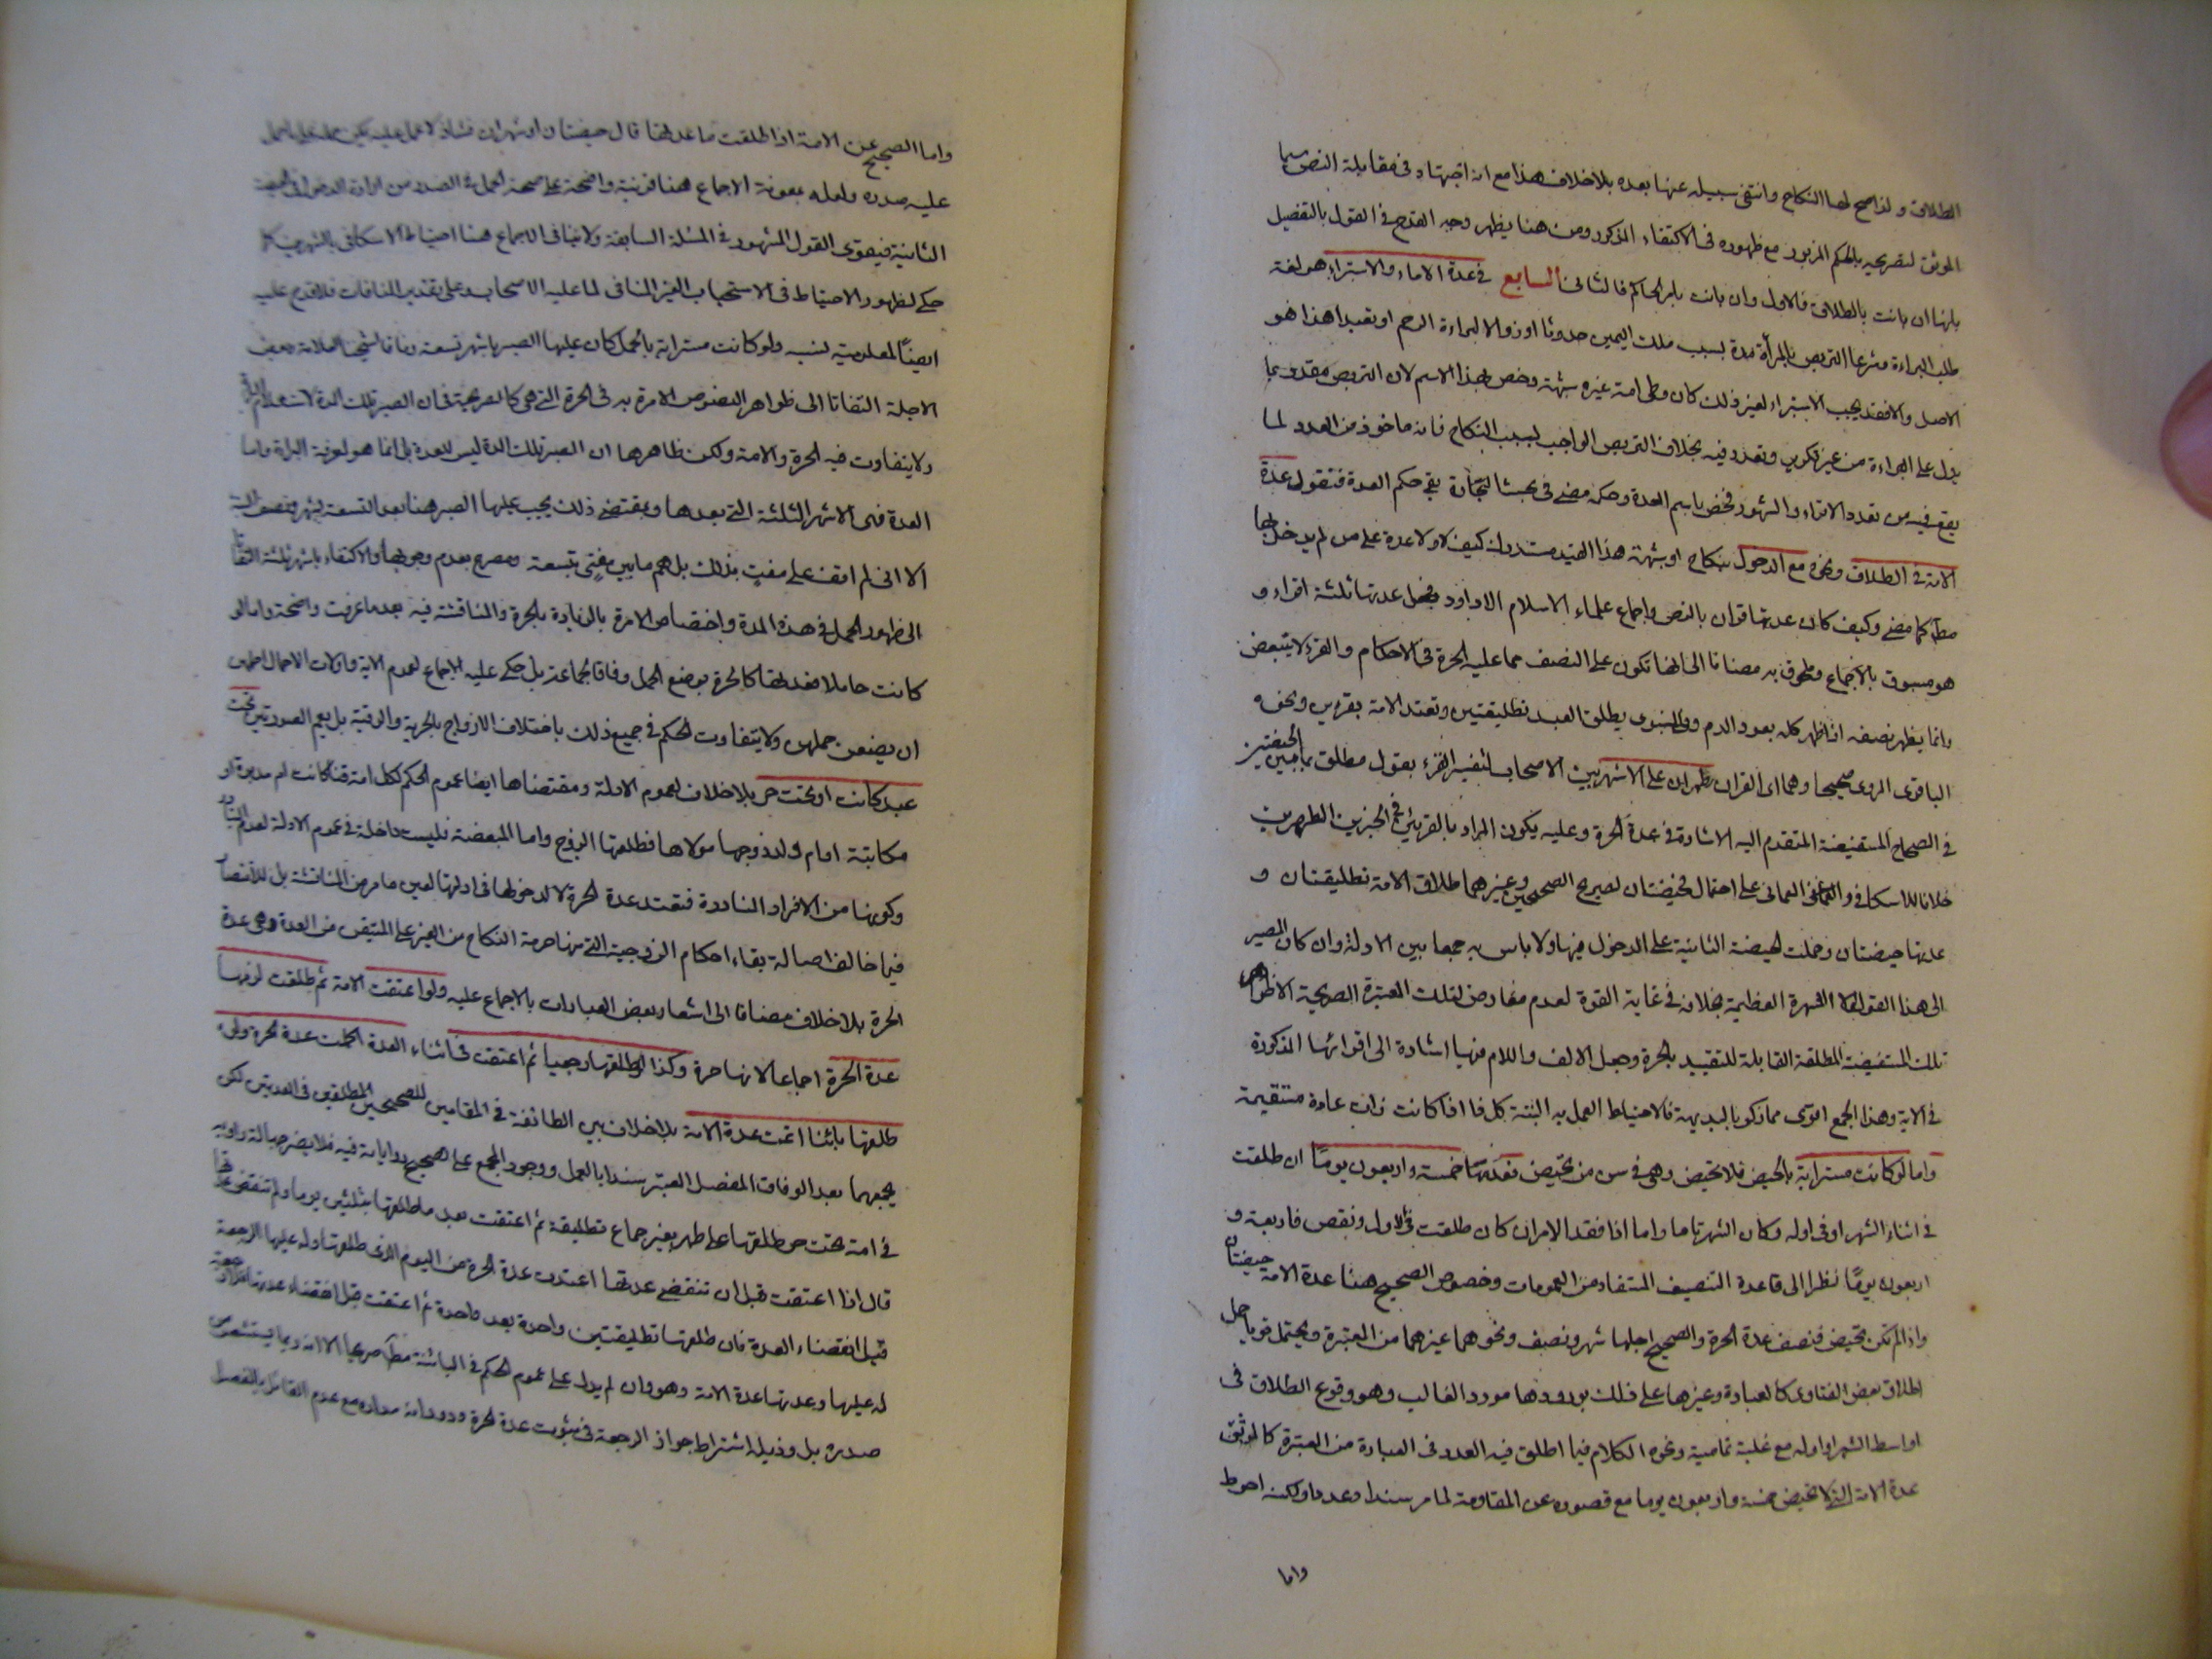 الطلاق ولذا صح لها النكاح وانتفى سبيله عنها بعده بلا خلاف هذا مع انه اجتهاد في مقابلة النص سيما
الموثق لتصريحه بالحكم المزبور مع ظهوره في الاكتفاء المذكور ومن هنا يظهر وجه القدح في القول بالتفصيل
بانها ان بانت بالطلاق فالاول وان بانت بامر الحاكم فالثاني السابع في عدة الاماء والاستبراء هو لغة
طلب البراءة وشرعا التربص بالمرأة مدة بسبب ملك اليمين حدوثا او زوالا لبراءة الرحم او تعبدا هذا هو
الاصل والا فقد يجب الاستبراء لغير ذلك كان وطى امة غيره شبهة وخص بهذا الاسم لان التربص مقدر بما
يدل على البراءة من غير تكرير وتعدد فيه بخلاف التربص الواجب بسبب النكاح فانه ماخوذ من العدد لما
يقع فيه من تعدد الاقراء والشهور فخص باسم العدة وحكمه مضى في بحث التجارة بقي حكم العدة فنقول عدة
الامة في الطلاق ونحوه مع الدخول بنكاح او شبهة هذا القيد مستدرك كيف لا ولا عدة على من لم يدخل بها
مطلقا كما مضى وكيف كان عدتها قران بالنص واجماع علماء الاسلام الا داود فجعل عدتها ثلثة اقراء و
هو مسبوق بالاجماع وملحوق به مضافا الى انها تكون على النصف مما عليه الحرة في الاحكام والقرء لا يتبعض
وانما يظهر نصفه اذا ظهر كله بعود الدم وفي النبوى يطلق العبد تطليقتين وتعتد الامة بقرئين ونحوه
الباقرى المروى صحيحا وهما اى القران طهران على الاشهر بين الاصحاب لتفسير القرء بقول مطلق بما بين الحيضتين
في الصحاح المستفيضة المتقدم اليه الاشارة في عدة الحرة وعليه يكون المراد بالقرئين في الخبرين الطهرين
خلافا للاسكافي والعماني على احتمال فحيضتان لصريح الصحيحين وغيرهما طلاق الامة تطليقتان و
عدتها حيضتان وحملت الحيضة الثانية على الدخول فيها ولا باس به جمعا بين الادلة وان كان المصير
الى هذا القول لولا الشهرة العظيمة بخلافه في غاية القوة لعدم معارض لتلك المعتبرة الصريحة الا ظواهر
تلك المستفيضة المطلقة القابلة للتقييد بالحرة وجعل الالف واللام فيها اشارة الى اقرائها المذكورة
في الاية وهذا الجمع اقوى مما ذكر بالبديهة فالاحتياط العمل به البتة كل ذا اذا كانت ذات عادة مستقيمة
واما لو كانت مسترابة بالحيض فلا تحيض وهى في سن من تحيض فعدتها خمسة واربعون يومًا ان طلقت
في اثناء الشهر او في اوله وكان الشهر تاما واما اذا فقد الامران كان طلقت في الاول ونقص فاربعة و
اربعون يومًا نظرا الى قاعدة التنصيف المستفاد من العمومات وخصوص الصحيح هنا عدة الامة حيضتان
واذا لم تكن تحيض فنصف عدة الحرة والصحيح اجلها شهر ونصف ونحوهما غيرهما من المعتبرة ويحتمل قويا حمل
اطلاق بعض الفتاوى كالعبارة وغيرها على ذلك بورودها مورد الغالب وهو وقوع الطلاق في
اواسط الشهر او اوله مع غلبة تماميته ونحوه الكلام فيما اطلق فيه العدد في العبارة من المعتبرة كالموثق
عدة الامة التى لا تحيض خمسة واربعون يوما مع قصوره عن المقاومة لما مر سندا وعددا ولكنه احوط
واما
واما الصحيح عن الامة اذا طلقت ما عدتها قال حيضتان او شهران فشاذ لا عمل عليه يمكن حمله على
عليه صدره ولعله بمعونة الاجماع هنا قرينة واضحة على صحة الحمل في الصدر من ارادة الدخول في الحيضة
الثانية فيقوى القول المشهور في المسئلة السابقة ولا ينافى الاجماع هنا احتياط الاسكافى بالشهرين كما
حكى لظهور الاحتياط في الاستحباب الغير المنافى لما عليه الاصحاب وعلى تقدير المنافات فلا قدح عليه
ايضًا لمعلومية نسبه ولو كانت مسترابة بالحمل كان عليها الصبر باشهر تسعة وفاقا لشيخنا العلامة وبعض
الاجلة التفاتا الى ظواهر النصوص الامرة به في الحرة التى هى كالصريحة في ان الصبر تلك المدة لاستعلام البراءة
ولا يتفاوت فيه الحرة والامة ولكن ظاهرها ان الصبر تلك المدة ليس للعدة بل انما هو لمعرفة البراءة واما
العدة فهى الاشهر الثلثة التى بعدها ومقتضى ذلك يجب عليها الصبر هنا بعد التسعة بشهر ونصف البتة
الا انى لم اقف على مفت بذلك بل هم ما بين مفتى بتسعة ومصرح بعدم وجوبها والاكتفاء باشهر ثلثة التفاتا
الى ظهور الحمل في هذه المدة واختصاص الامرة بالزيادة بالحرة والمناقشة فيه بعد ما عرفت واضحة واما لو
كانت حاملا فعدتها كالحرة بوضع الحمل وفاقا لجماعة بل حكى عليه الاجماع لعموم الاية واولات الاحمال اجلهن
ان يضعن حملهن ولا يتفاوت الحكم في جميع ذلك باختلاف الازواج بالحرية والرقية بل يعم الصورتين تحت
عبد كانت او تحت حر بلا خلاف لعموم الادلة ومقتضاها ايضا عموم الحكم لكل امة قنا كانت ام مدبرة او
مكاتبة او ام ولد زوجها مولاها فطلقها الزوج واما المبعضة فليست داخلة في عموم الادلة لعدم التبادر
وكونها من الافراد النادرة فتعتد عدة الحرة لا لدخولها في ادلتها لعين ما مر من المناقشة بل للاقتصار
فيما خالف اصالة بقاء احكام الزوجية التى منها حرمة النكاح من الغير على المتيقن من العدة وهى عدة
الحرة بلا خلاف مضافا الى اشعار بعض العبارات بالاجماع عليه ولو اعتقت الامة ثم طلقت لزمها
عدة الحرة اجماعا لانها حرة وكذا لو طلقها رجعيا ثم اعتقت في اثناء العدة اكملت عدة الحرة ولو
طلقها بائنا اتمت عدة الامة بلا خلاف بين الطائفة في المقامين للصحيحين المطلقين في العدتين لكن
يجمعهما بعد الوفاق المفصل المعتبر سندا بالعمل ووجود المجمع على تصحيح رواياته فيه فلا يضر جهالة راويه
في امة تحت حر طلقها على طهر بغير جماع تطليقة ثم اعتقت بعد ما طلقها بثلثين يوما ولم تنقض عدتها
قال اذا اعتقت قبل ان تنقضى عدتها اعتدت عدة الحرة من اليوم الذى طلقها وله عليها الرجعة
قبل انقضاء العدة فان طلقها تطليقتين واحدة بعد واحدة ثم اعتقت قبل انقضاء عدتها فلا رجعة
له عليها وعدتها عدة الامة وهو وان لم يدل على عموم الحكم في البائنة مطلقا صريحا الا انه ربما يستشعر من
صدره بل وذيله اشتراط جواز الرجعة في ثبوت عدة الحرة ودورانه مداره مع عدم القائل بالفصل